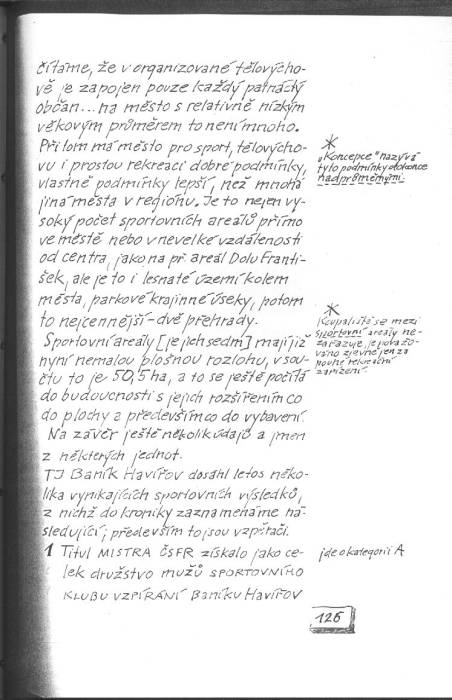 čítáme, že v organizované tělovýcho-
vě je zapojen pouze každý patnáctý
občan... na město s relativně nízkým
věkovým průměrem to není mnoho.
Při tom má město pro sport, tělovýcho-
vu i prostou rekreaci dobré podmínky,
vlastně podmínky lepší, než mnohá
jiná města v regionu. Je to nejen vy-
soký počet sportovních areálů přímo
ve městě nebo v nevelké vzdálenosti
od centra, jako na př. areál Dolu Franti-
šek, ale je to i lesnaté území kolem
města, parkové krajinné úseky, potom
to nejcennější - dvě přehrady.
Sportovní areály [je jich sedm] mají již
nyní nemalou plošnou rozlohu, v sou-
čtu to je 50,5 ha, a to se ještě počítá
do budoucnosti s jejich rozšířením co
do plochy a především co do vybavení.
Na závěr ještě několik údajů a jmen
z některých jednot.
TJ Baník Havířov dosáhl letos něko-
lika vynikajících sportovních výsledků,
z nichž do kroniky zaznamenáme ná-
sledující; především to jsou vzpěrači.
1 Titul MISTRA ČSFR získalo jako ce-
lek družstvo mužů SPORTOVNÍHO
KLUBU VZPÍRÁNÍ Baníku Havířov
*
„Koncepce" nazývá
tyto podmínky dokonce
nadprůměrnými.
*
Koupaliště se mezi
sportovní areály ne-
zařazuje, je pokažo-
váno zjevně jen za
pouhé rekreační
zařízení.
jde o kategorii A
126